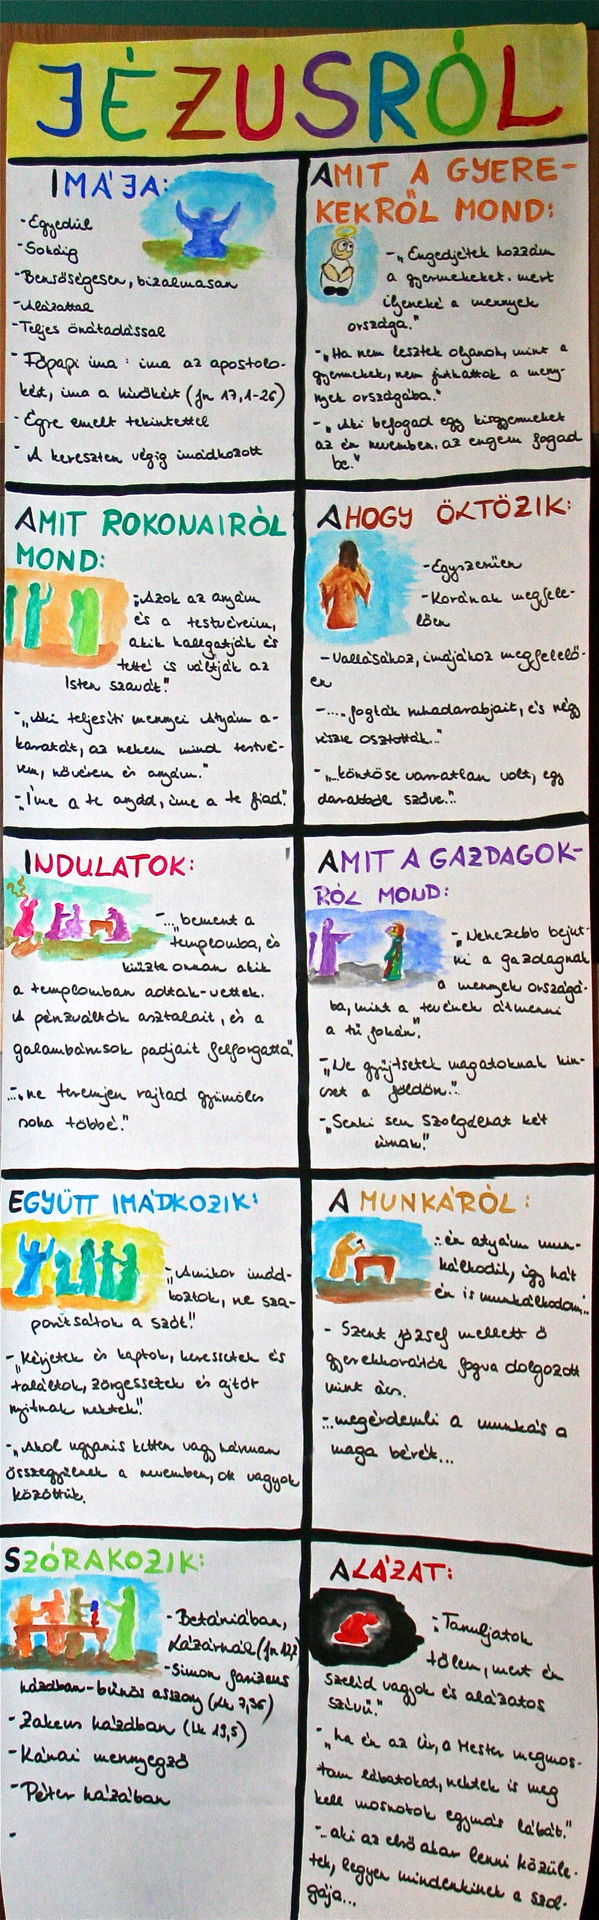 JÉZUSRÓL
IMÁJA:
-Egyedül
-Sokáig
-Bensőségesen, bizalmasan
-Alázattal
-Teljes önátadással
-Főpapi ima: ima az apostolo-
kért, ima a hívőkért (Jn 17,1-26)
-Égre emelt tekintettel
-A kereszten végig imádkozott
AMIT A GYERE-
KEKRŐL MOND:
-„Engedjétek hozzám
a gyermekeket. mert
ilyeneké a mennyek
országa."
-„Ha nem lesztek olyanok, mint a
gyermekek, nem juthattok a meny-
nyek országába."
-„Aki befogad egy kisgyermeket
az én nevemben, az engem fogad
be."
AMIT ROKONAIRÓL
MOND:
-„Azok az anyám
és a testvéreim,
akik hallgatják és
tetté is váltják az
Isten szavát."
-„Aki teljesíti mennyei Atyám a-
karatát, az nekem mind testvé-
rem, nővérem és anyám."
-„Íme a te anyád, íme a te fiad."
AHOGY ÖLTÖZIK:
-Egyszerűen
-Korának megfele-
lően
-Vallásához, imájához megfelelő-
en
-„...fogták ruhadarabjait, és négy
részre osztották..."
-„...köntöse varratlan volt, egy
darabból szőve..."
INDULATOK:
-„...bement a
templomba, és
kiűzte onnan akik
a templomban adtak-vettek.
A pénzváltók asztalait, és a
galambárusok padjait felforgatta."
-„...ne teremjen rajtad gyümölcs
soha többé."
AMIT A GAZDAGOK-
RÓL MOND:
-„Nehezebb bejut-
ni a gazdagnak
a mennyek országá-
ba, mint a tevének átmenni
a tű fokán."
-„Ne gyűjtsetek magatoknak kin-
cset a földön..."
-„Senki sem szolgálhat két
úrnak."
EGYÜTT IMÁDKOZIK:
-„Amikor imád-
koztok, ne sza-
porítsátok a szót!"
-„Kérjetek és kaptok, keressetek és
találtok, zörgessetek és ajtót
nyitnak nektek!"
-„Ahol ugyanis ketten vagy hárman
összegyűlnek a nevemben, ott vagyok
köztük.
A MUNKÁRÓL:
-„én atyám mun-
kálkodik, így hát
én is munkálkodom..."
- Szent József mellett ő
gyerekkorától fogva dolgozott
mint ács.
-„...megérdemli a munkás a
maga bérét...
SZÓRAKOZIK:
-Betániában,
Lázárnál (Jn 12,2)
-Simon farizeus
házában-bűnös asszony (Lk 7,36)
-Zakeus házában (Lk 19,5)
-Kánai mennyegző
-Péter házában
-
ALÁZAT:
-„Tanuljatok
tőlem, mert én
szelíd vagyok és alázatos
szívű."
-„ha én az Úr, a Mester megmos-
tam lábatokat, nektek is meg
kell mosnotok egymás lábát."
-„...aki az első akar lenni közüle-
tek, legyen mindenkinek a szol-
gája...